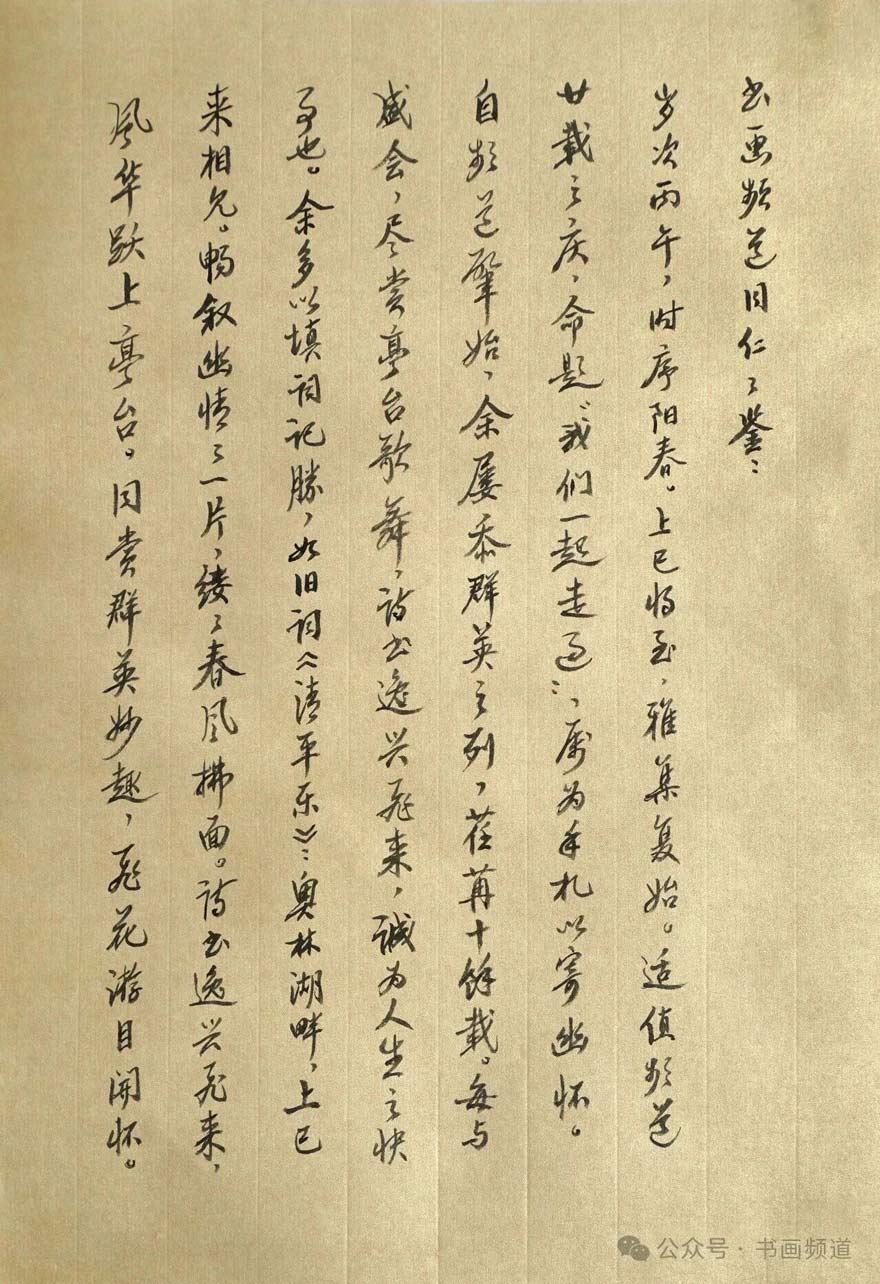 书画频道同仁々鉴：
岁次丙午，时序阳春。上巳将至，雅集复始。适值频道
廿载之庆，命题“我们一起走过”，属为手札以寄幽怀。
自频道肇始，余屡忝群英之列，荏苒十馀载。每与
盛会，尽赏亭台歌舞，诗书逸兴飞来，诚为人生之快
事也。余多以填词记胜，如旧词《清平乐》：奥林湖畔，上巳
来相允。畅叙幽情々一片，缕々春风拂面。诗书逸兴飞来，
风华跃上亭台。同赏群英妙趣，飞花游目开怀。
公众号·书画频道